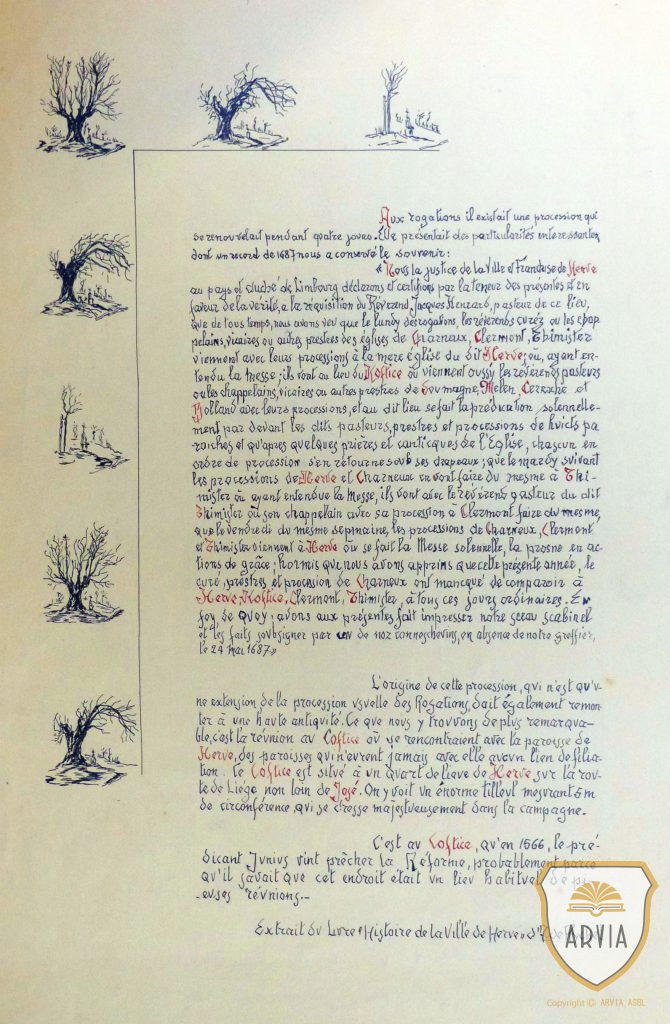 Aux rogations il existait une procession qui
se renouvelait pendant quatre jours. Elle présentait des particularités intéressantes,
dont un record de 1687 nous a conservé le souvenir:
"Nous la justice de la Ville et Franchise de Herve
au pays et duché de Limbourg déclarons et certifions par la teneur des présentes et en
faveur de la vérité, a la réquisition du Révérend Jacques Henrard, pasteur de ce lieu,
que de tous temps, nous avons veu que le lundy des rogations, les révérends curéz ou les chap-
pelains, vicaires ou autres prestres des églises de Charneux, Clermont, Thimister
viennent avec leurs processions à la mere église du dit Herve; où, ayant en-
tendu la messe; ils vont au lieu du Kostice où viennent oussy les révérends pasteurs
ou les chappelains, vicaires ou autres prestres de Soumagne, Melen, Cerexhe et
Bolland avec leurs processions, et au dit lieu se fait la prédication solennelle-
ment par devant les dits pasteurs, prestres et processions de huicts pa-
roiches et qu'apres quelques prières et cantiques de l'Eglise, chascun en
ordre de procession s'en retourne soub ses drapeaux; que le mardy suivant
les processions de Herve et Charneux en vont faire du mesme à Thi-
mister où ayant entendue la Messe, ils vont avec le révérens pasteur du dit
Thimister ou son chappelain avec sa procession à Clermont faire du mesme,
que le vendredi du mesme sepmaine, les processions de Charneux, Clermont
et Thimister viennent à Herve où se fait la Messe solennelle, la prosne en ac-
tions de grâce; hormis que nous avons apprins que cette présente année, le
curé, prestres et procession de Charneux ont manqué de comparoir à
Herve, Kostice, Clermont, Thimister, à tous ces jours ordinaires. En
foy de quoy; avons aux présentes fait impresser notre seeau scabinel
et les faits soubsigner par un de noz conneschevins, en absence de notre greffier,
le 24 mai 1687"
L'origine de cette procession, qui n'est qu'u-
ne extension de la procession usuelle des Rogations, doit également remon-
ter à une haute antiquité. Ce que nous y trouvons de plus remarqua-
ble, c'est la réunion au Coftice où se rencontraient avec la paroisse de
Herve, des paroisses qui n'eurent jamais avec elle aucun lien de filia-
tion. Le Coftice est situé à un quart de lieue de Herve sur la rou-
te de Liège non loin de José. On y voit un énorme tilleul mesurant 5 m
de circonférence, qui se dresse majestueusement dans la campagne.
C'est au Coftice, qu'en 1566, le pré-
dicant Junius vint prêcher la Réforme, probablement parce
qu'il savait que cet endroit était un lieu habituel de pi-
euses réunions.-
Extrait du Livre "Histoire de la Ville de Herve"
ARVIA
Copyright © ARVIA, ASBL